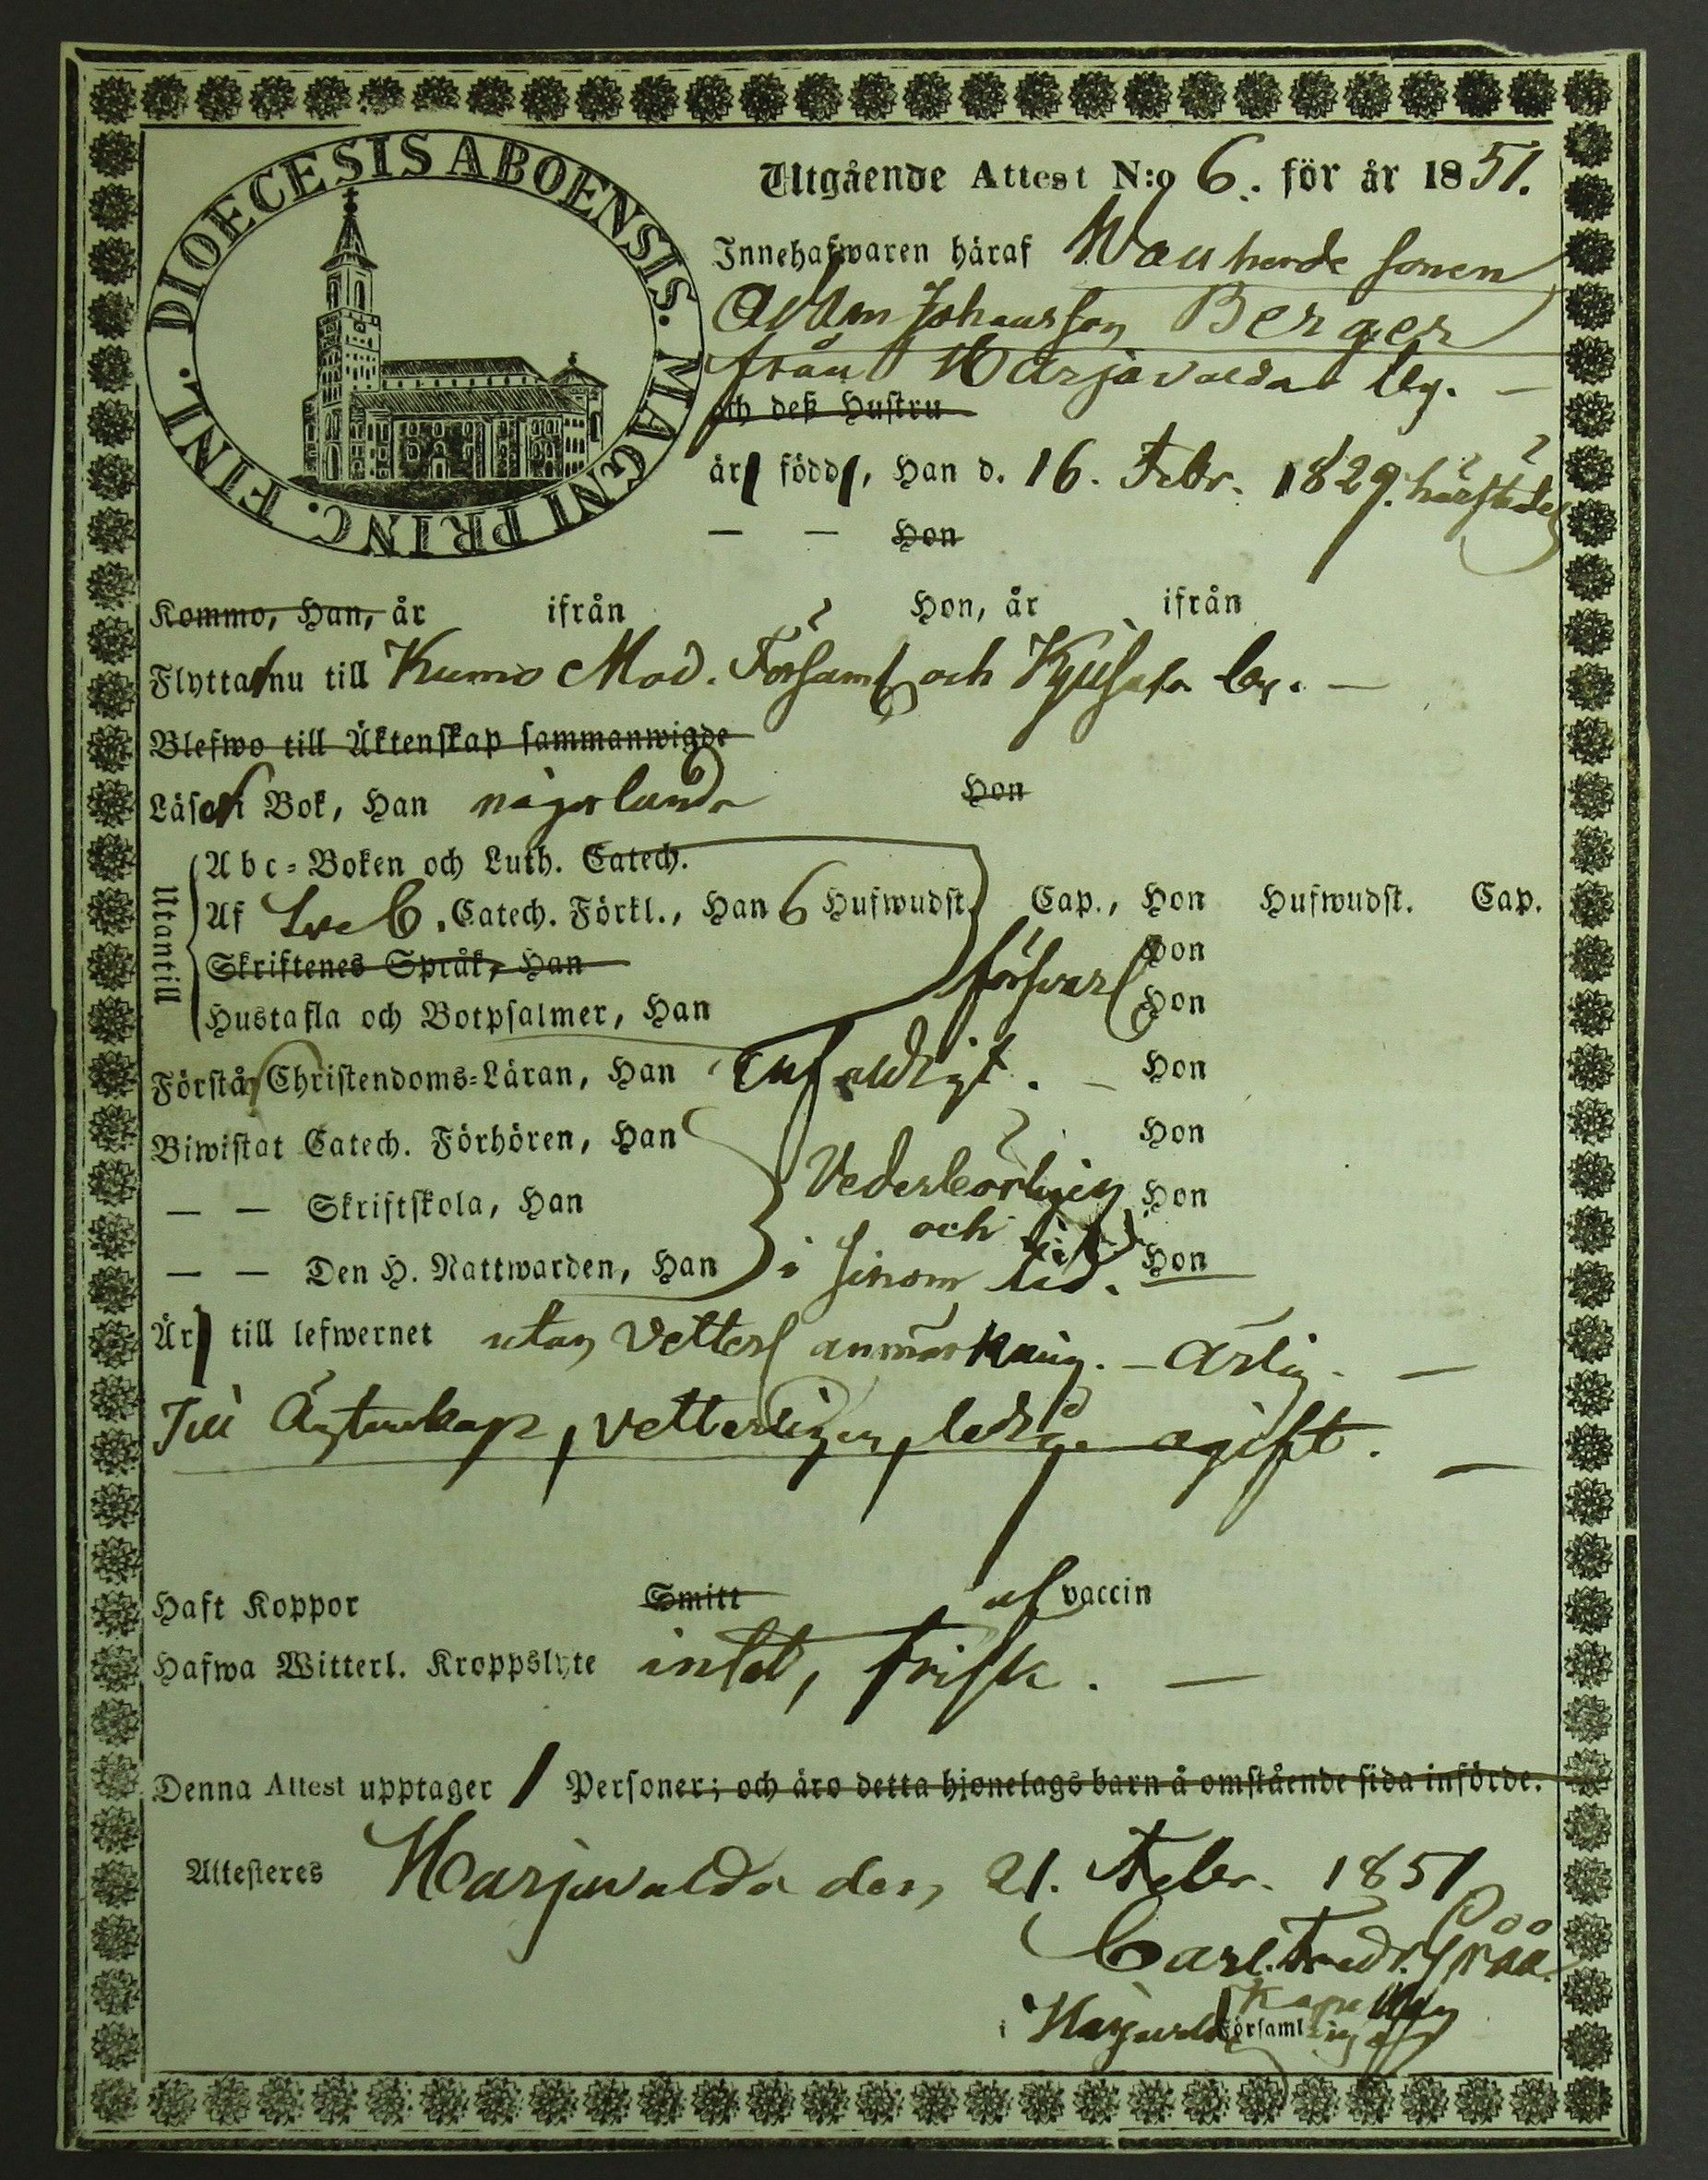 DIOECESIS ABOENSIS. MAGNI PRINC. FINL.
Utgående Attest N:o 6. för år 1851.
Innehafwaren häraf sonen
Adam Johansson Berger
från Harjavalda by. —
och deß Hustru
är född, Han d. 16. Febr. 1829. härstädes
— — Hon
Kommo, Han, år ifrån Hon, år ifrån
Flytta nu till Kumo Mod. Församl och by. —
Blefwo till Äktenskap sammanwigde
Läser i Bok, Han någorlunda Hon
Utantill
Abc-Boken och Luth. Catech.
Af Sveb. Catech. Förkl., Han 6 Hufwudst. Cap., Hon Hufwudst. Cap.
Skriftenes Språk, Han försvarl Hon
Hustafla och Botpsalmer, Han Hon
Förstår Christendoms-Läran, Han enfaldigt. — Hon
Biwistat Catech. Förhören, Han Hon
— — Skriftskola, Han Vederbörligen Hon
och
— — Den H. Nattwarden, Han i sinom tid. Hon
Är till lefwernet utan vetterl anmärkning. — ärlig. —
Till Ägtenskap, vetterligen, ledig ogift. —
Haft Koppor Smitt af vaccin
Hafwa Witterl. Kroppslyte intet, frisk. —
Denna Attest upptager 1 Personer; och äro detta hjonelags barn å omstående sida införde.
Attesteres Harjavalda den 21. Febr. 1851
Carl. Fredr. Gröö.
Kapellan
i Harjavalda Församling